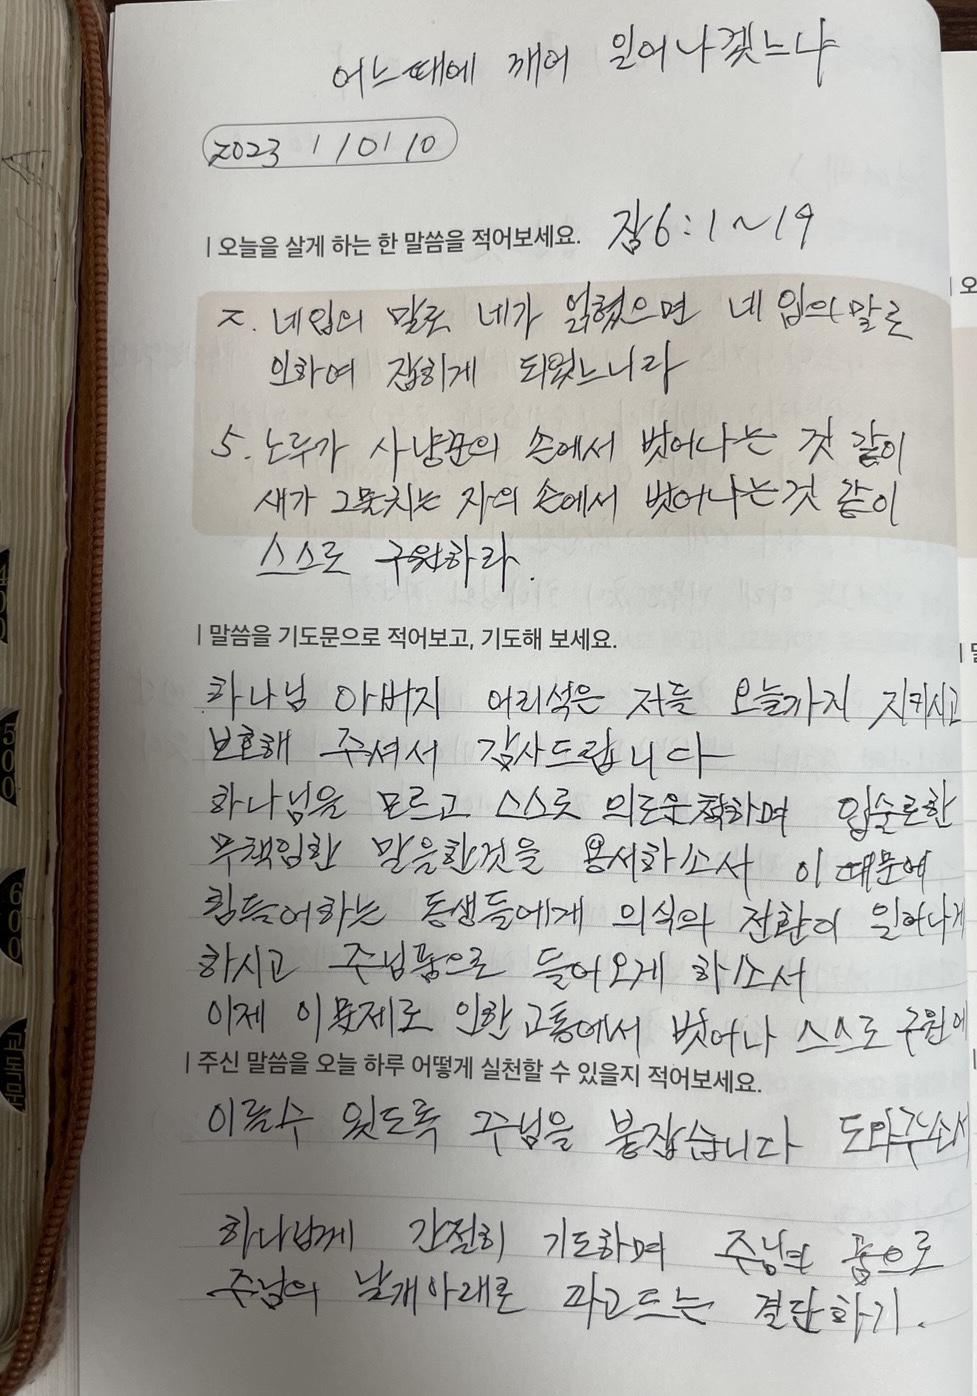 어느때에 깨어 일어나겠느냐
2023 / 10 / 10
| 오늘을 살게 하는 한 말씀을 적어보세요. 잠6:1~19
2. 네입의 말로 네가 얽혔으면 네 입의 말로
인하여 잡히게 되었느니라
5. 노루가 사냥꾼의 손에서 벗어나는 것 같이
새가 그물치는 자의 손에서 벗어나는것 같이
스스로 구원하라.
| 말씀을 기도문으로 적어보고, 기도해 보세요.
하나님 아버지 어리석은 저를 오늘까지 지키시고
보호해 주셔서 감사드립니다
하나님을 모르고 스스로 의로운척하며 입술로한
무책임한 말을한것을 용서하소서 이 때문에
힘들어하는 동생들에게 의식의 전환이 일어나게
하시고 주님품으로 들어오게 하소서
이제 이문제로 인한 고통에서 벗어나 스스로 구원에
| 주신 말씀을 오늘 하루 어떻게 실천할 수 있을지 적어보세요.
이를수 있도록 주님을 붙잡습니다 도와주소서
하나님께 간절히 기도하며 주님의 품으로
주님의 날개아래로 파고드는 결단하기.
400
500
600
교독문